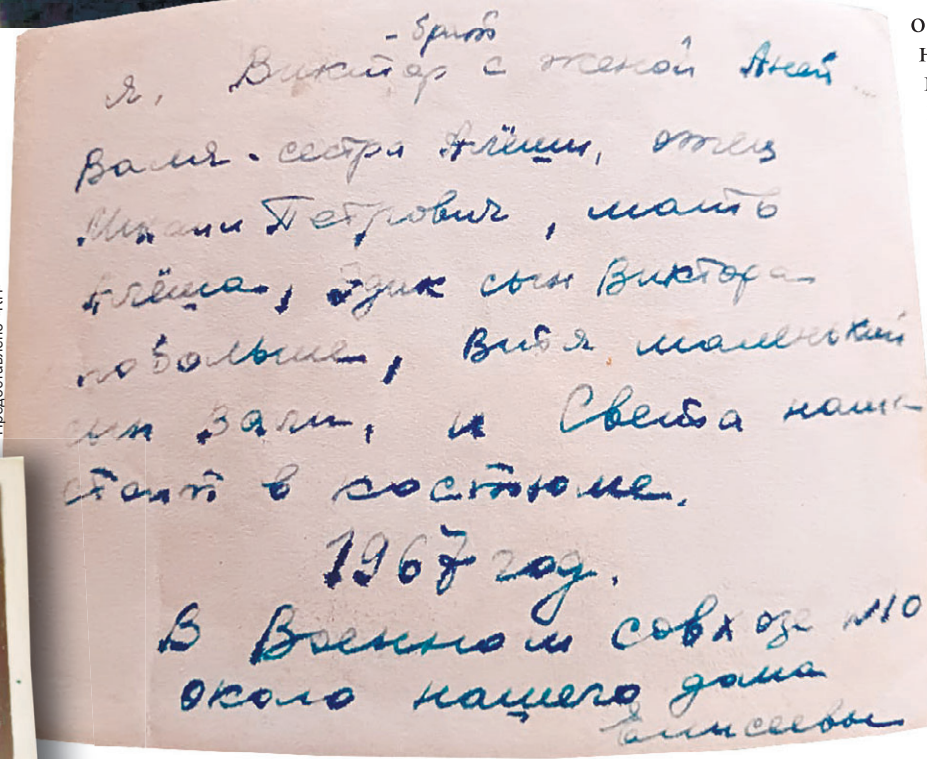 - брат
я, Виктор с женой Аней
Валя - сестра Алёши, отец
Михаил Петрович, мать
Алёша, Эдик сын Виктора
побольше, Витя маленький
сын Вали, и Света наша
стоит в костюме.
1967 год.
В Военном совхозе №10
около нашего дома
Елисеевы